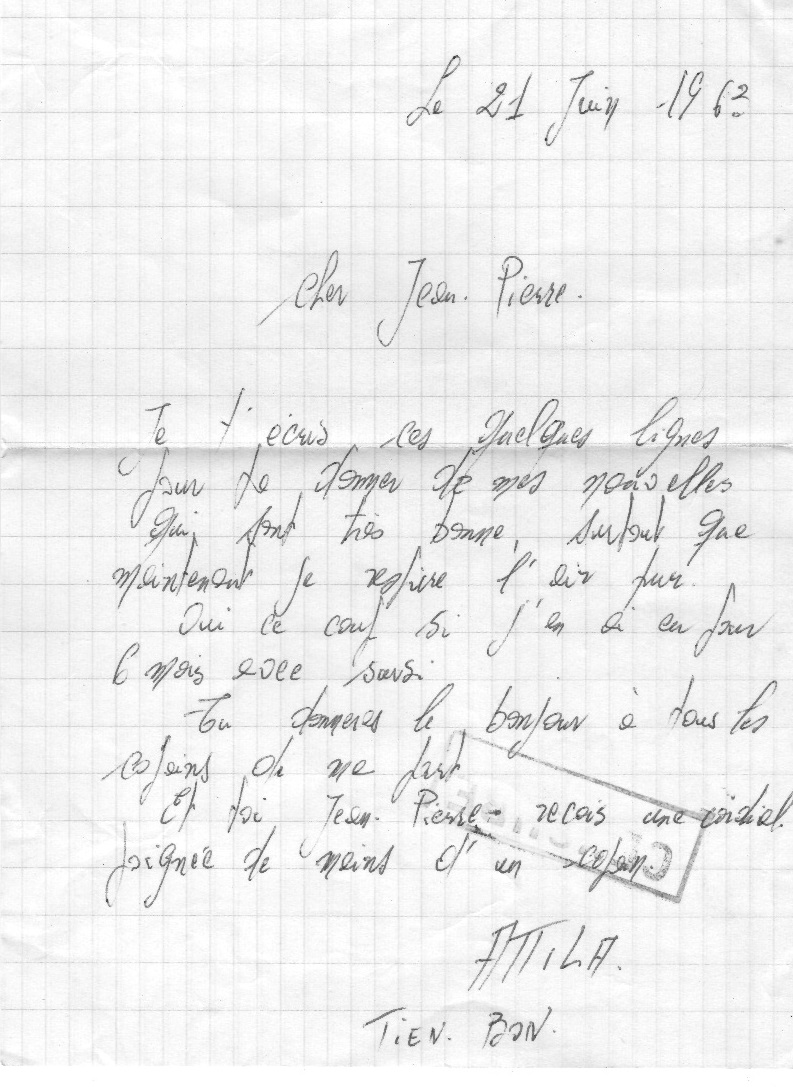 Le 21 Juin 1962
Cher Jean. Pierre.
Je t'écris ces quelques lignes
pour te donner de mes nouvelles
qui sont très bonne, surtout que
maintenant je respire l'air pur.
Oui ce coup si j'en ai eu pour
6 mois avec sursi.
Tu donneras le bonjour à tous les
copains de ma part
Et toi Jean. Pierre recois une cordial.
poignée de mains d'un copain.
ATTILA.
TIEN. BON.